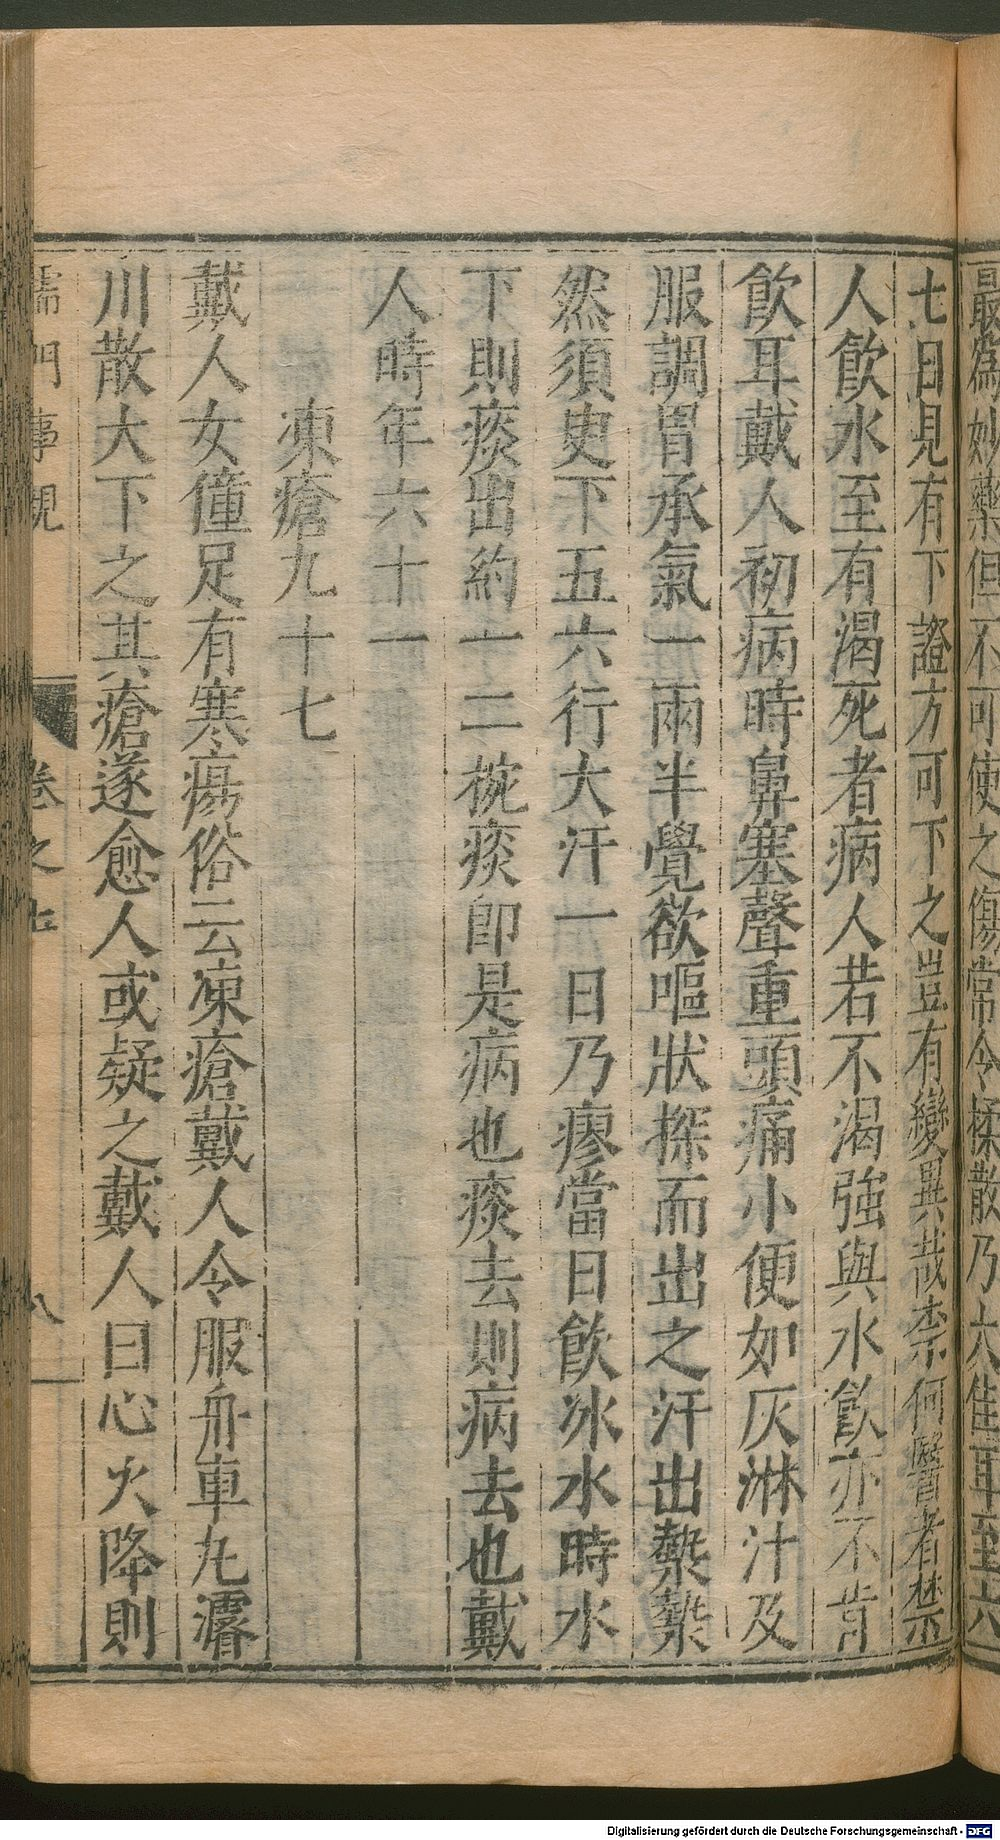 最為妙藥但不可使之傷常令揉散乃大佳耳至六
七日見有下證方可下之豈有變異哉柰何醫者禁
人飲水至有渴死者病人若不渴強與水飲亦不肯
飲耳戴人初病時鼻塞聲重頭痛小便如灰淋汁及
服調胃承氣一兩半覺欲嘔狀探而出之汗出漐漐
然須臾下五六行大汗一日乃瘳當日飲冰水時水
下則痰出約一二椀痰即是病也痰去則病去也戴
人時年六十一
凍瘡九十七
戴人女僮足有寒瘍俗云凍瘡戴人令服舟車丸濬
川散大下之其瘡遂愈人或疑之戴人曰心火降則
儒門事親
卷之七
八
Digitalisierung gefördert durch die Deutsche Forschungsgemeinschaft - DFG